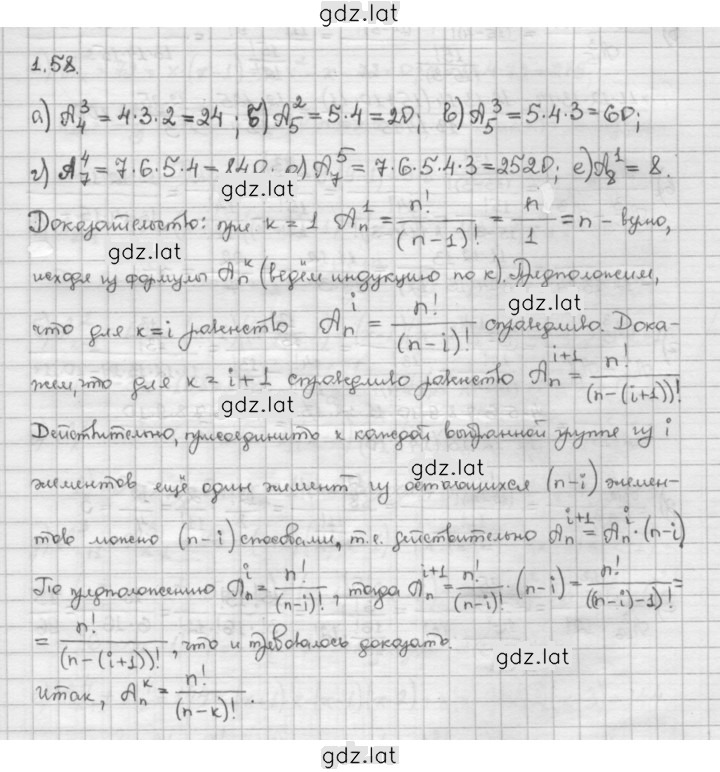 gdz.lat
1.58.
а) A₄³ = 4·3·2 = 24; б) A₅² = 5·4 = 20; в) A₅³ = 5·4·3 = 60;
г) A₇⁴ = 7·6·5·4 = 840. д) A₇⁵ = 7·6·5·4·3 = 2520; е) A₈¹ = 8.
gdz.lat
Доказательство: при к = 1 Aₙ¹ = n!/(n-1)! = n/1 = n – верно,
gdz.lat
исходя из формулы Aₙᵏ (ведём индукцию по к). Предположим,
gdz.lat
что для к = i равенство Aₙⁱ = n!/(n-i)! справедливо. Дока-
жем, что для к = i+1 справедливо равенство Aₙⁱ⁺¹ = n!/(n-(i+1))!
gdz.lat
Действительно, присоединить к каждой выбранной группе из i
gdz.lat
элементов ещё один элемент из остающихся (n-i) элемен-
тов можно (n-i) способами, т.е. действительно Aₙⁱ⁺¹ = Aₙⁱ·(n-i)
По предположению Aₙⁱ = n!/(n-i)!, тогда Aₙⁱ⁺¹ = n!/(n-i)!·(n-i) = n!/((n-i)-1)! =
= n!/(n-(i+1))!, что и требовалось доказать.
gdz.lat
Итак, Aₙᵏ = n!/(n-k)!.
gdz.lat